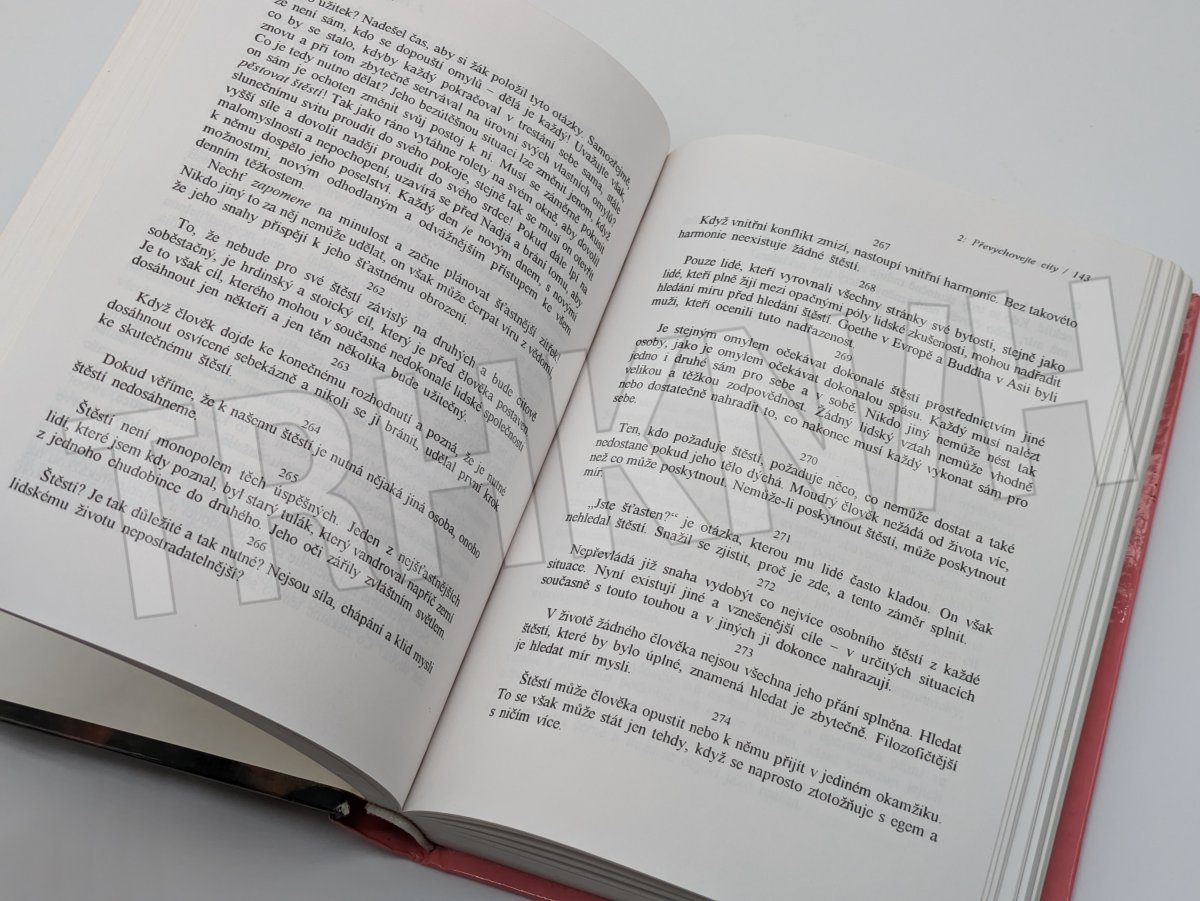 užitek? Nadešel čas, aby si žák položil tyto otázky. Samozřejmě,
že není sám, kdo se dopouští omylů – dělá je každý! Uvažujte však,
co by se stalo, kdyby každý pokračoval v trestání sebe sama, stále
znovu a při tom zbytečně setrvával na úrovni svých vlastních omylů?
Co je tedy nutno dělat? Jeho bezútěšnou situaci lze změnit jenom, když
on sám je ochoten změnit svůj postoj k ní. Musí se záměrně pokusit
pěstovat štěstí! Tak jako ráno vytáhne rolety na svém okně, aby dovolil
slunečnímu svitu proudit do svého pokoje, stejně tak se musí on otevřít
vyšší síle a dovolit naději proudit do svého srdce! Pokud dále lpí na
malomyslnosti a nepochopení, uzavírá se před Nadjá a brání tomu, aby
k němu dospělo jeho poselství. Každý den je novým dnem, s novými
možnostmi, novým odhodlaným a odvážnějším přístupem ke všem
denním těžkostem.
Nechť zapomene na minulost a začne plánovat šťastnější zítřek!
Nikdo jiný to za něj nemůže udělat, on však může čerpat víru z vědomí,
že jeho snahy přispějí k jeho šťastnému obrození.
262
To, že nebude pro své štěstí závislý na druhých a bude citově
soběstačný, je hrdinský a stoický cíl, který je před člověka postaven.
Je to však cíl, kterého mohou v současné nedokonalé lidské společnosti
dosáhnout jen někteří a jen těm několika bude užitečný.
263
Když člověk dojde ke konečnému rozhodnutí a pozná, že je nutné
dosáhnout osvícené sebekázně a nikoli se jí bránit, udělal první krok
ke skutečnému štěstí.
264
Dokud věříme, že k našemu štěstí je nutná nějaká jiná osoba, onoho
štěstí nedosáhneme.
265
Štěstí není monopolem těch úspěšných. Jeden z nejšťastnějších
lidí, které jsem kdy poznal, byl starý tulák, který vandroval napříč zemí
z jednoho chudobince do druhého. Jeho oči zářily zvláštním světlem.
266
Štěstí? Je tak důležité a tak nutné? Nejsou síla, chápání a klid mysli
lidskému životu nepostradatelnější?
2. Převychovejte city / 143
267
Když vnitřní konflikt zmizí, nastoupí vnitřní harmonie. Bez takovéto
harmonie neexistuje žádné štěstí.
268
Pouze lidé, kteří vyrovnali všechny stránky své bytosti, stejně jako
lidé, kteří plně žijí mezi opačnými póly lidské zkušenosti, mohou nadřadit
hledání míru před hledání štěstí. Goethe v Evropě a Buddha v Asii byli
muži, kteří ocenili tuto nadřazenost.
269
Je stejným omylem očekávat dokonalé štěstí prostřednictvím jiné
osoby, jako je omylem očekávat dokonalou spásu. Každý musí nalézt
jedno i druhé sám pro sebe a v sobě. Nikdo jiný nemůže nést tak
velikou a těžkou zodpovědnost. Žádný lidský vztah nemůže vhodně
nebo dostatečně nahradit to, co nakonec musí každý vykonat sám pro
sebe.
270
Ten, kdo požaduje štěstí, požaduje něco, co nemůže dostat a také
nedostane pokud jeho tělo dýchá. Moudrý člověk nežádá od života víc,
než co může poskytnout. Nemůže-li poskytnout štěstí, může poskytnout
mír.
271
„Jste šťasten?“ je otázka, kterou mu lidé často kladou. On však
nehledal štěstí. Snažil se zjistit, proč je zde, a tento záměr splnit.
272
Nepřevládá již snaha vydobýt co nejvíce osobního štěstí z každé
situace. Nyní existují jiné a vznešenější cíle – v určitých situacích
současně s touto touhou a v jiných ji dokonce nahrazují.
273
V životě žádného člověka nejsou všechna jeho přání splněna. Hledat
štěstí, které by bylo úplné, znamená hledat je zbytečně. Filozofičtější
je hledat mír mysli.
274
Štěstí může člověka opustit nebo k němu přijít v jediném okamžiku.
To se však může stát jen tehdy, když se naprosto ztotožňuje s egem a
s ničím více.
TRHKNIH